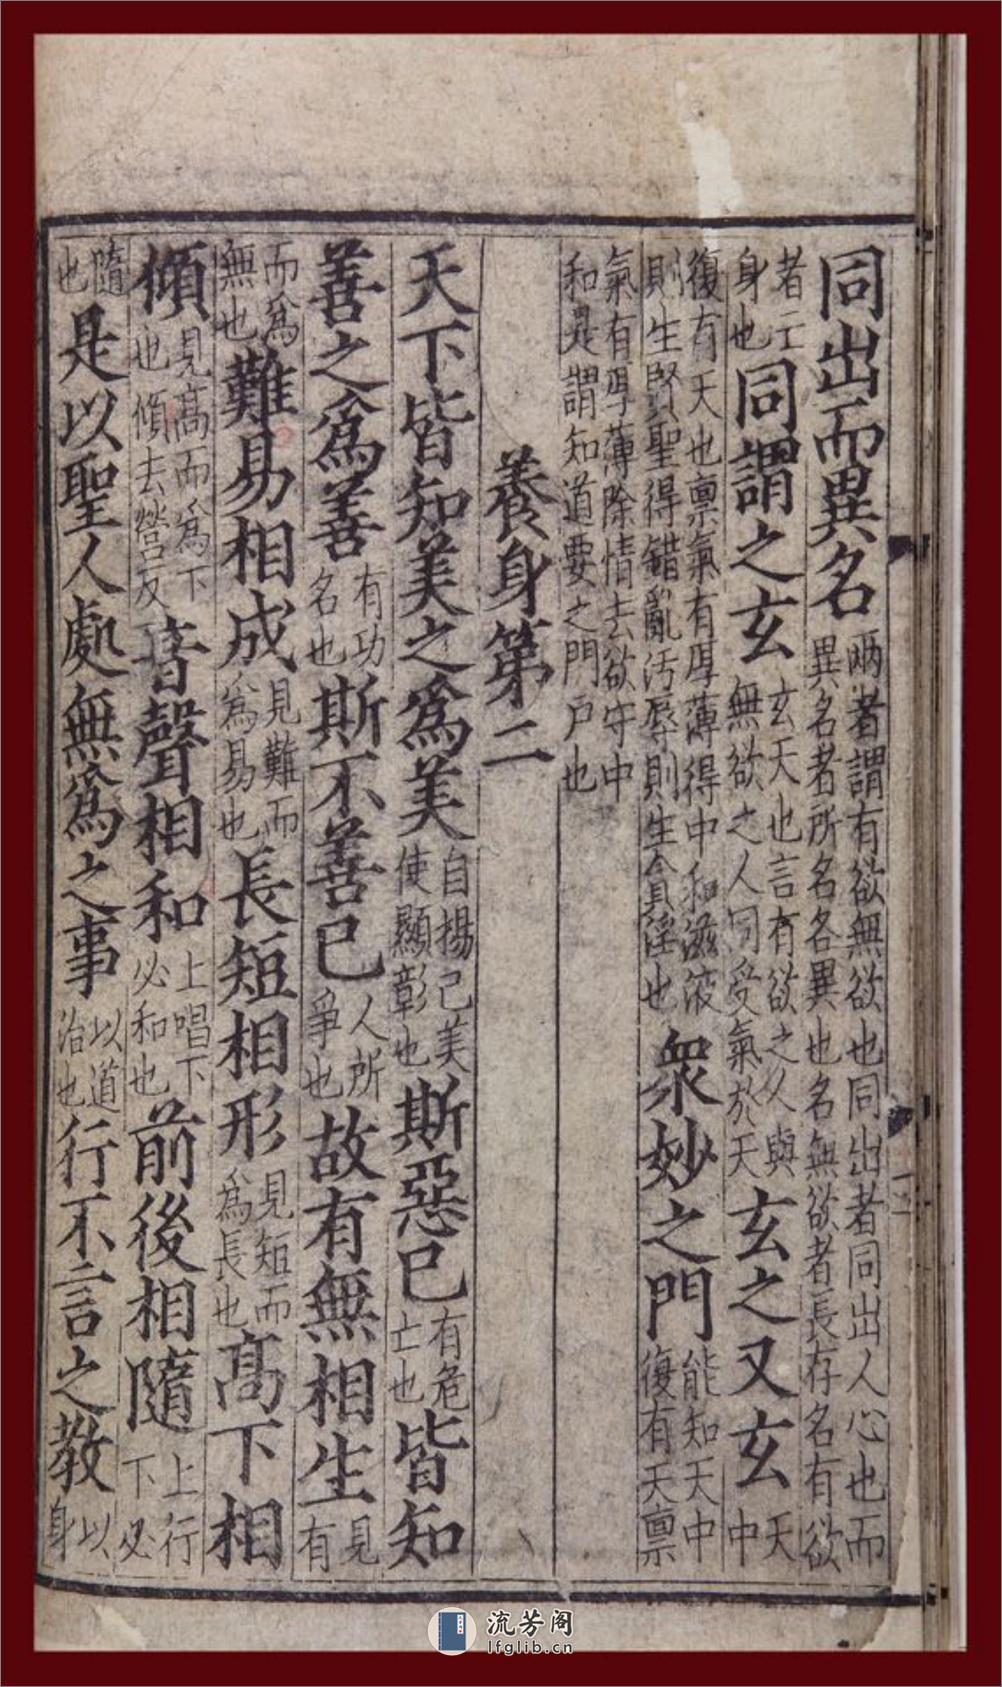 同出而異名兩者謂有欲無欲也同出者同出人心也而異名者所名各異也名無欲者長存名有欲
者亡身也同謂之玄玄天也言有欲之人與無欲之人同受氣於天玄之又玄天中
復有天也禀氣有厚薄得中和滋液則生賢聖得錯亂汚辱則生貪淫也衆妙之門能知天中復有天禀
氣有厚薄除情去欲守中和是謂知道要之門戶也
養身第二
天下皆知美之爲美自揚己美使顯彰也斯惡已有危亡也皆知
善之爲善有功名也斯不善已人所爭也故有無相生見有
而爲無也難易相成見難而爲易也長短相形見短而爲長也高下相
傾見高而爲下也傾去營反音聲相和上唱下必和也前後相隨上行下必
隨也是以聖人處無爲之事以道治也行不言之教以身
流芳阁
lfglib.cn